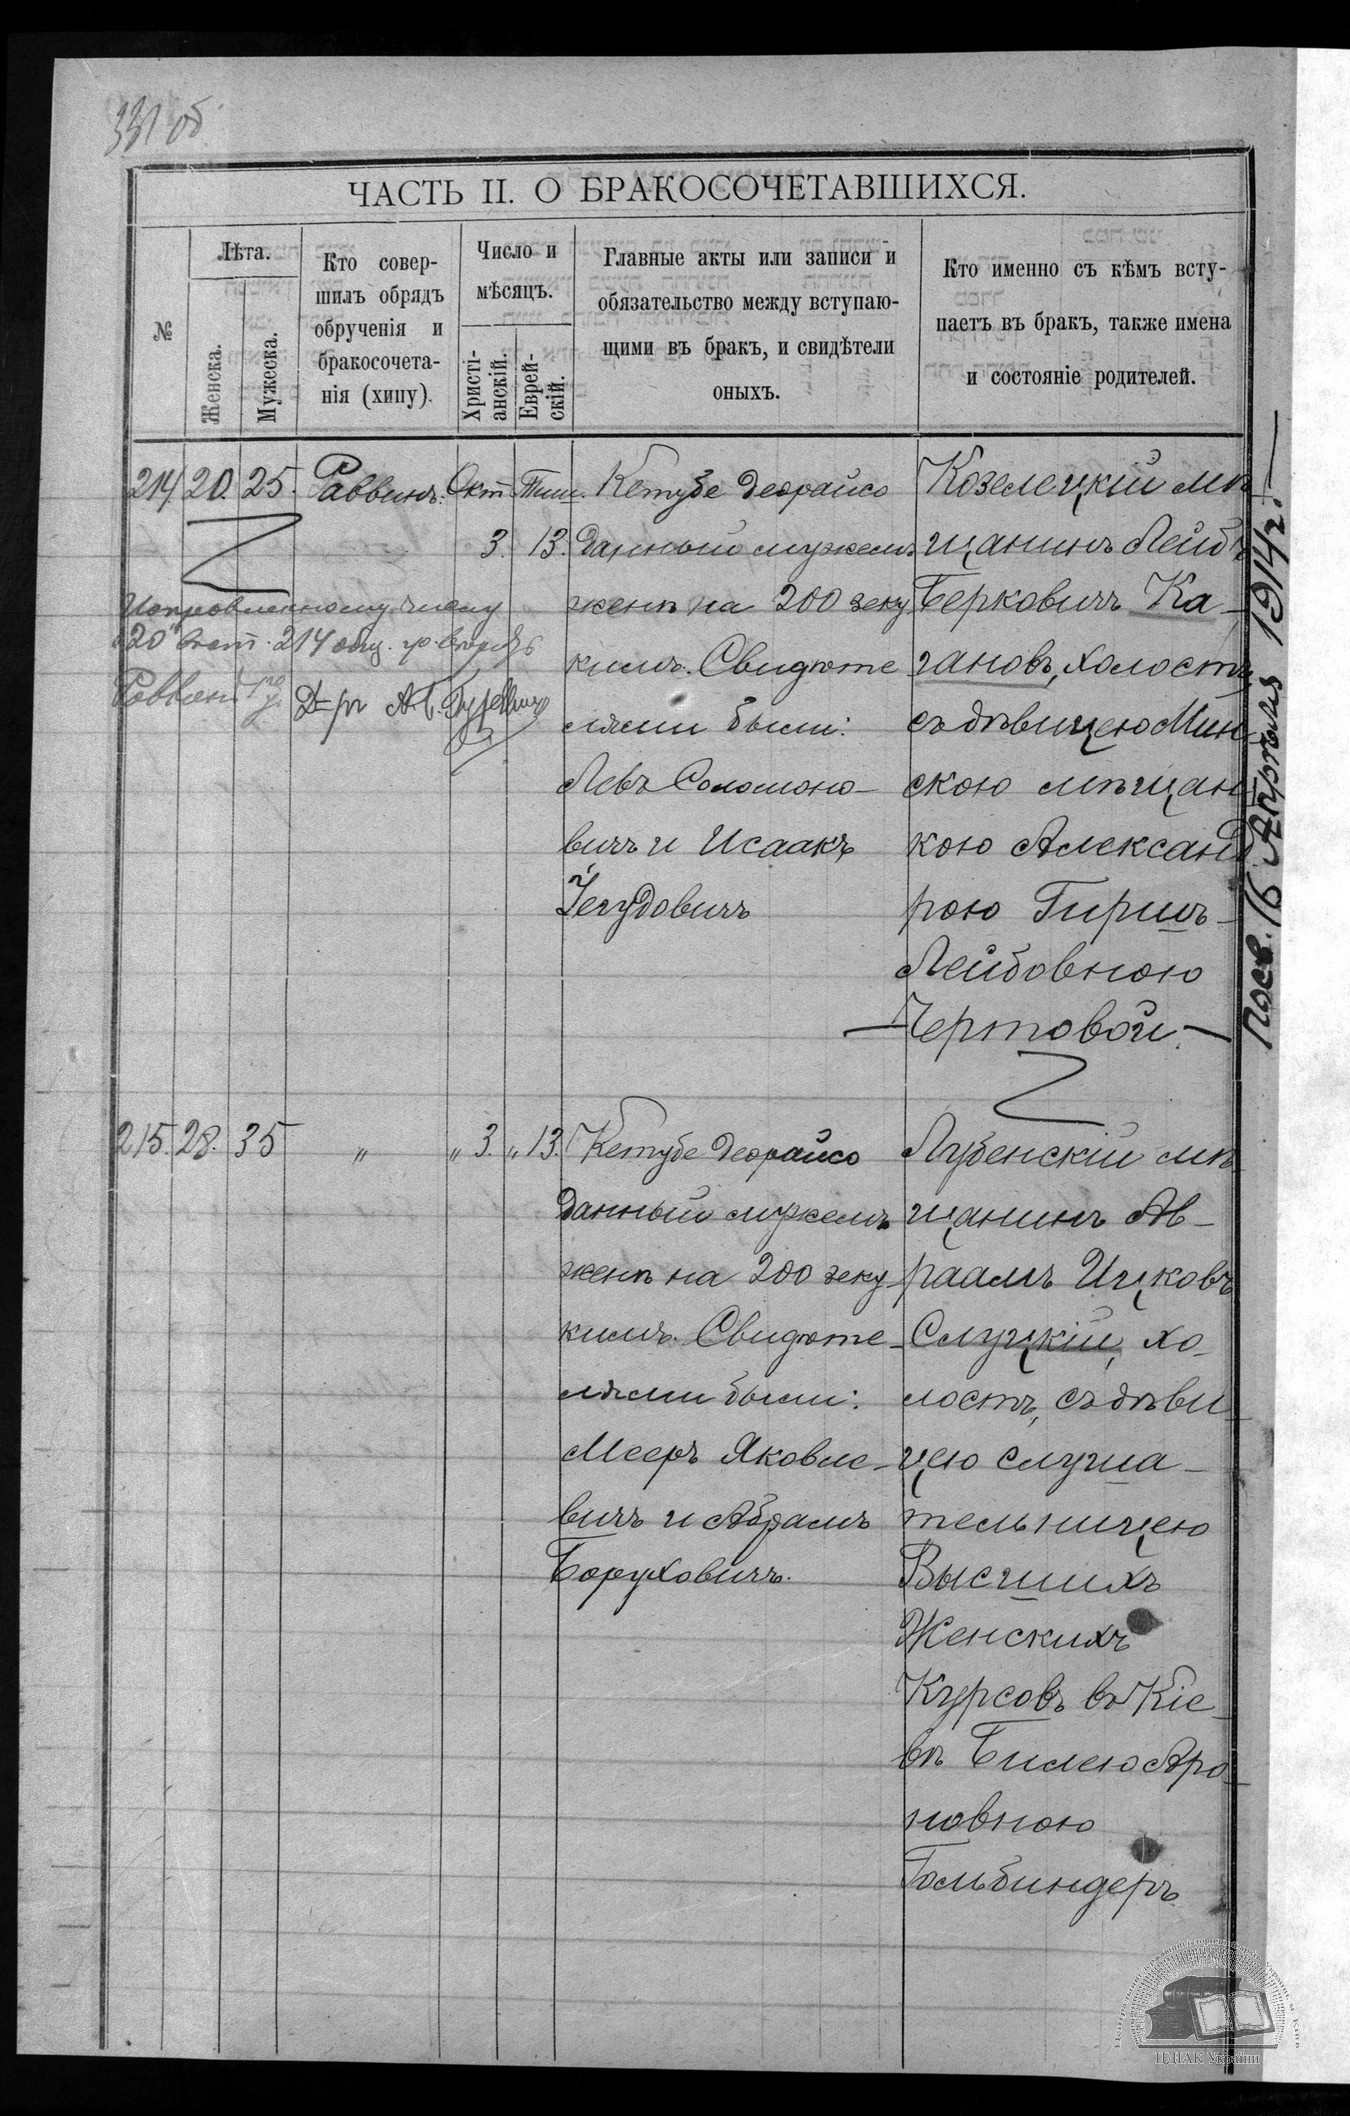 331 об
ЧАСТЬ II. О БРАКОСОЧЕТАВШИХСЯ.
№
Лѣта.
Женска.
Мужеска.
Кто совер-
шилъ обрядъ
обрученія и
бракосочета-
нія (хипу).
Число и
мѣсяцъ.
Христі-
анскій.
Еврей-
скій.
Главные акты или записи и
обязательство между вступаю-
щими въ бракъ, и свидѣтели
оныхъ.
Кто именно съ кѣмъ всту-
паетъ въ бракъ, также имена
и состояніе родителей.
214 20. 25. Раввинъ. Окт Тиш.
3. 13.
Исправленному числу
"20"
214
Раввинъ
Д-ръ
Кетубе деорайсо
данный мужемъ
женѣ на 200 зеку
кимъ. Свидѣте
лями были:
Левъ Соломоно-
вичъ и Исаакъ
Іегудовичъ
Козелецкій мѣ
щанинъ Лейбъ
Берковичъ Ка-
гановъ, холостъ,
съ дѣвицею Мин
скою мѣщан
кою Александ
рою Гиршъ-
Лейбовною
Чертовой.
215. 28. 35 " " 3. " 13.
Кетубе деорайсо
данный мужемъ
женѣ на 200 зеку
кимъ. Свидѣте-
лями были:
Мееръ Яковле-
вичъ и Абрамъ
Боруховичъ.
Лубенскій мѣ
щанинъ Ав-
раамъ Ицковъ
Слуцкій, хо-
лостъ, съ дѣви-
цею слуша-
тельницею
Высшихъ
Женскихъ
Курсовъ въ Кіе-
вѣ Билею Аро-
новною
Гольбиндеръ.
16 Апрѣля 1914 г.
ЦДІАК України